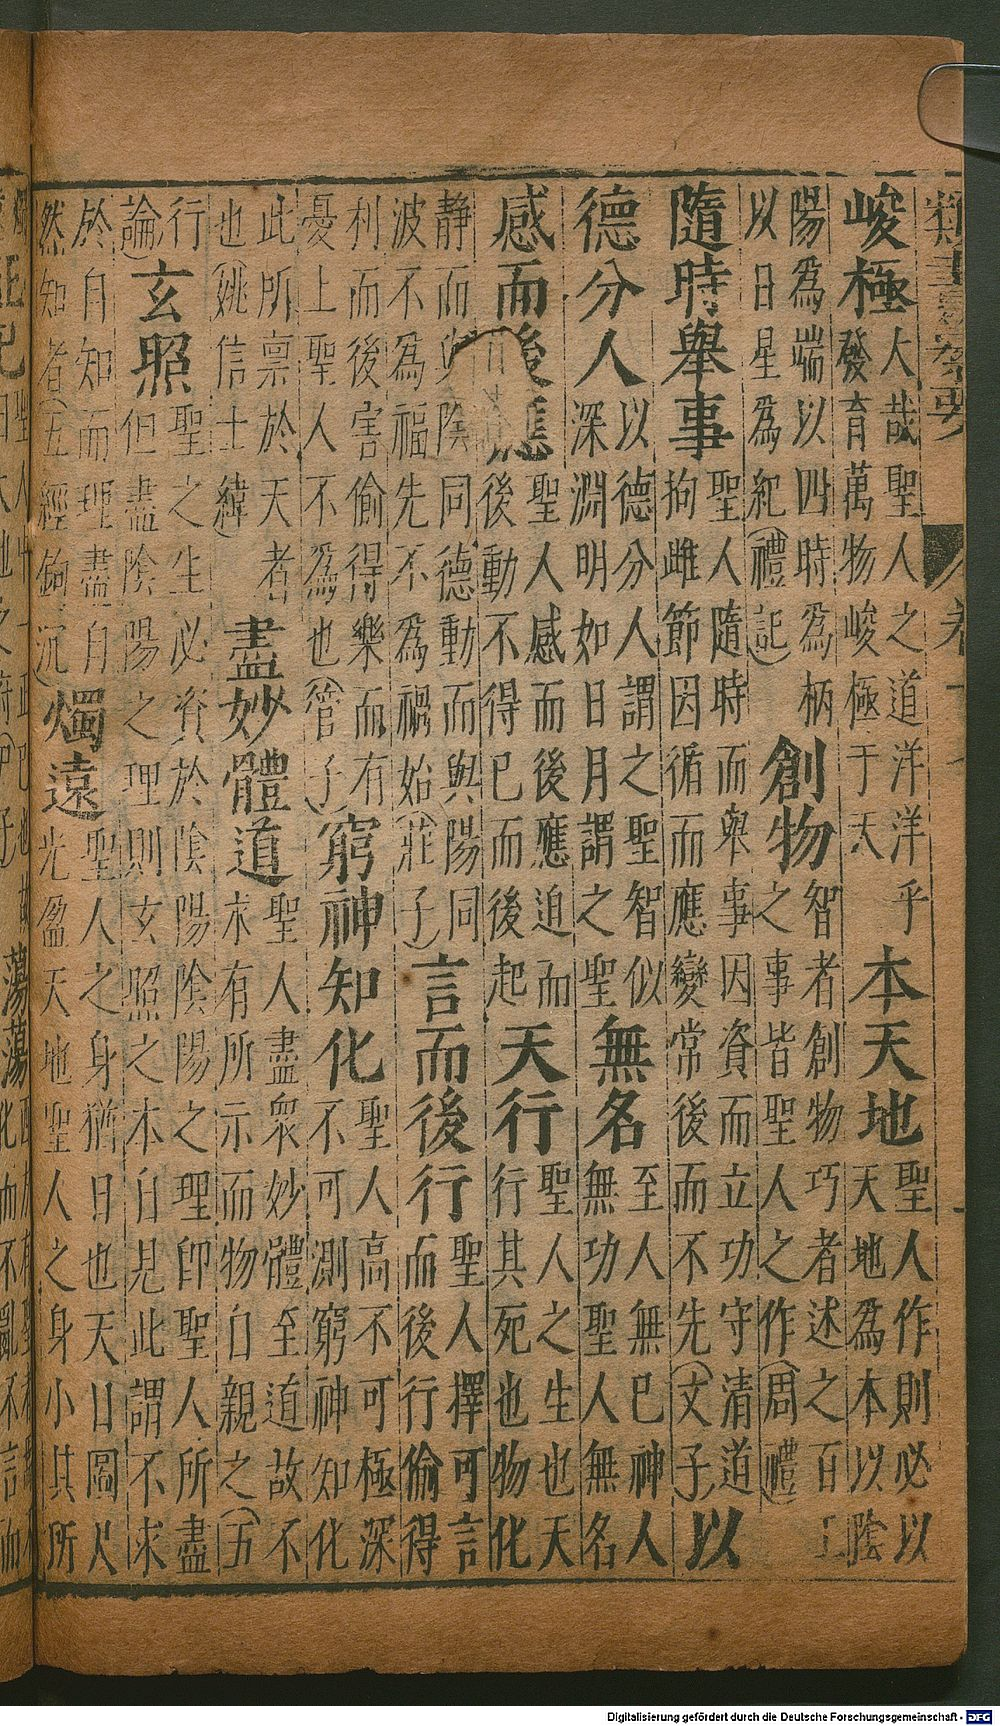 峻極大哉聖人之道洋洋乎發育萬物峻極于天本天地聖人作則必以天地為本以陰
陽為端以四時為柄以日星為紀(禮記)創物智者創物巧者述之百工之事皆聖人之作(周禮)
隨時舉事聖人隨時而舉事因資而立功守清道拘雌節因循而應變常後而不先(文子)以
德分人以德分人謂之聖智似深淵明如日月謂之聖無名至人無已神人無功聖人無名
感而後應聖人感而後應迫而後動不得已而後起天行聖人之生也天行其死也物化
静而與陰同德動而與陽同波不為福先不為禍始(莊子)言而後行聖人擇可言而後行偷得
利而後害偷得樂而有憂上聖人不為也(管子)窮神知化聖人高不可極深不可測窮神知化
此所禀於天者也(姚信士緯)盡妙體道聖人盡衆妙體至道故不求有所示而物自親之(五
行論)玄照聖之生必資於陰陽陰陽之理即聖人所盡但盡陰陽之理則玄照之本自見此謂不求
於自知而理盡自然知者(五經鉤沉)燭遠聖人之身猶日也天日圓尺光盈天地聖人之身小其所
Digitalisierung gefördert durch die Deutsche Forschungsgemeinschaft - DFG